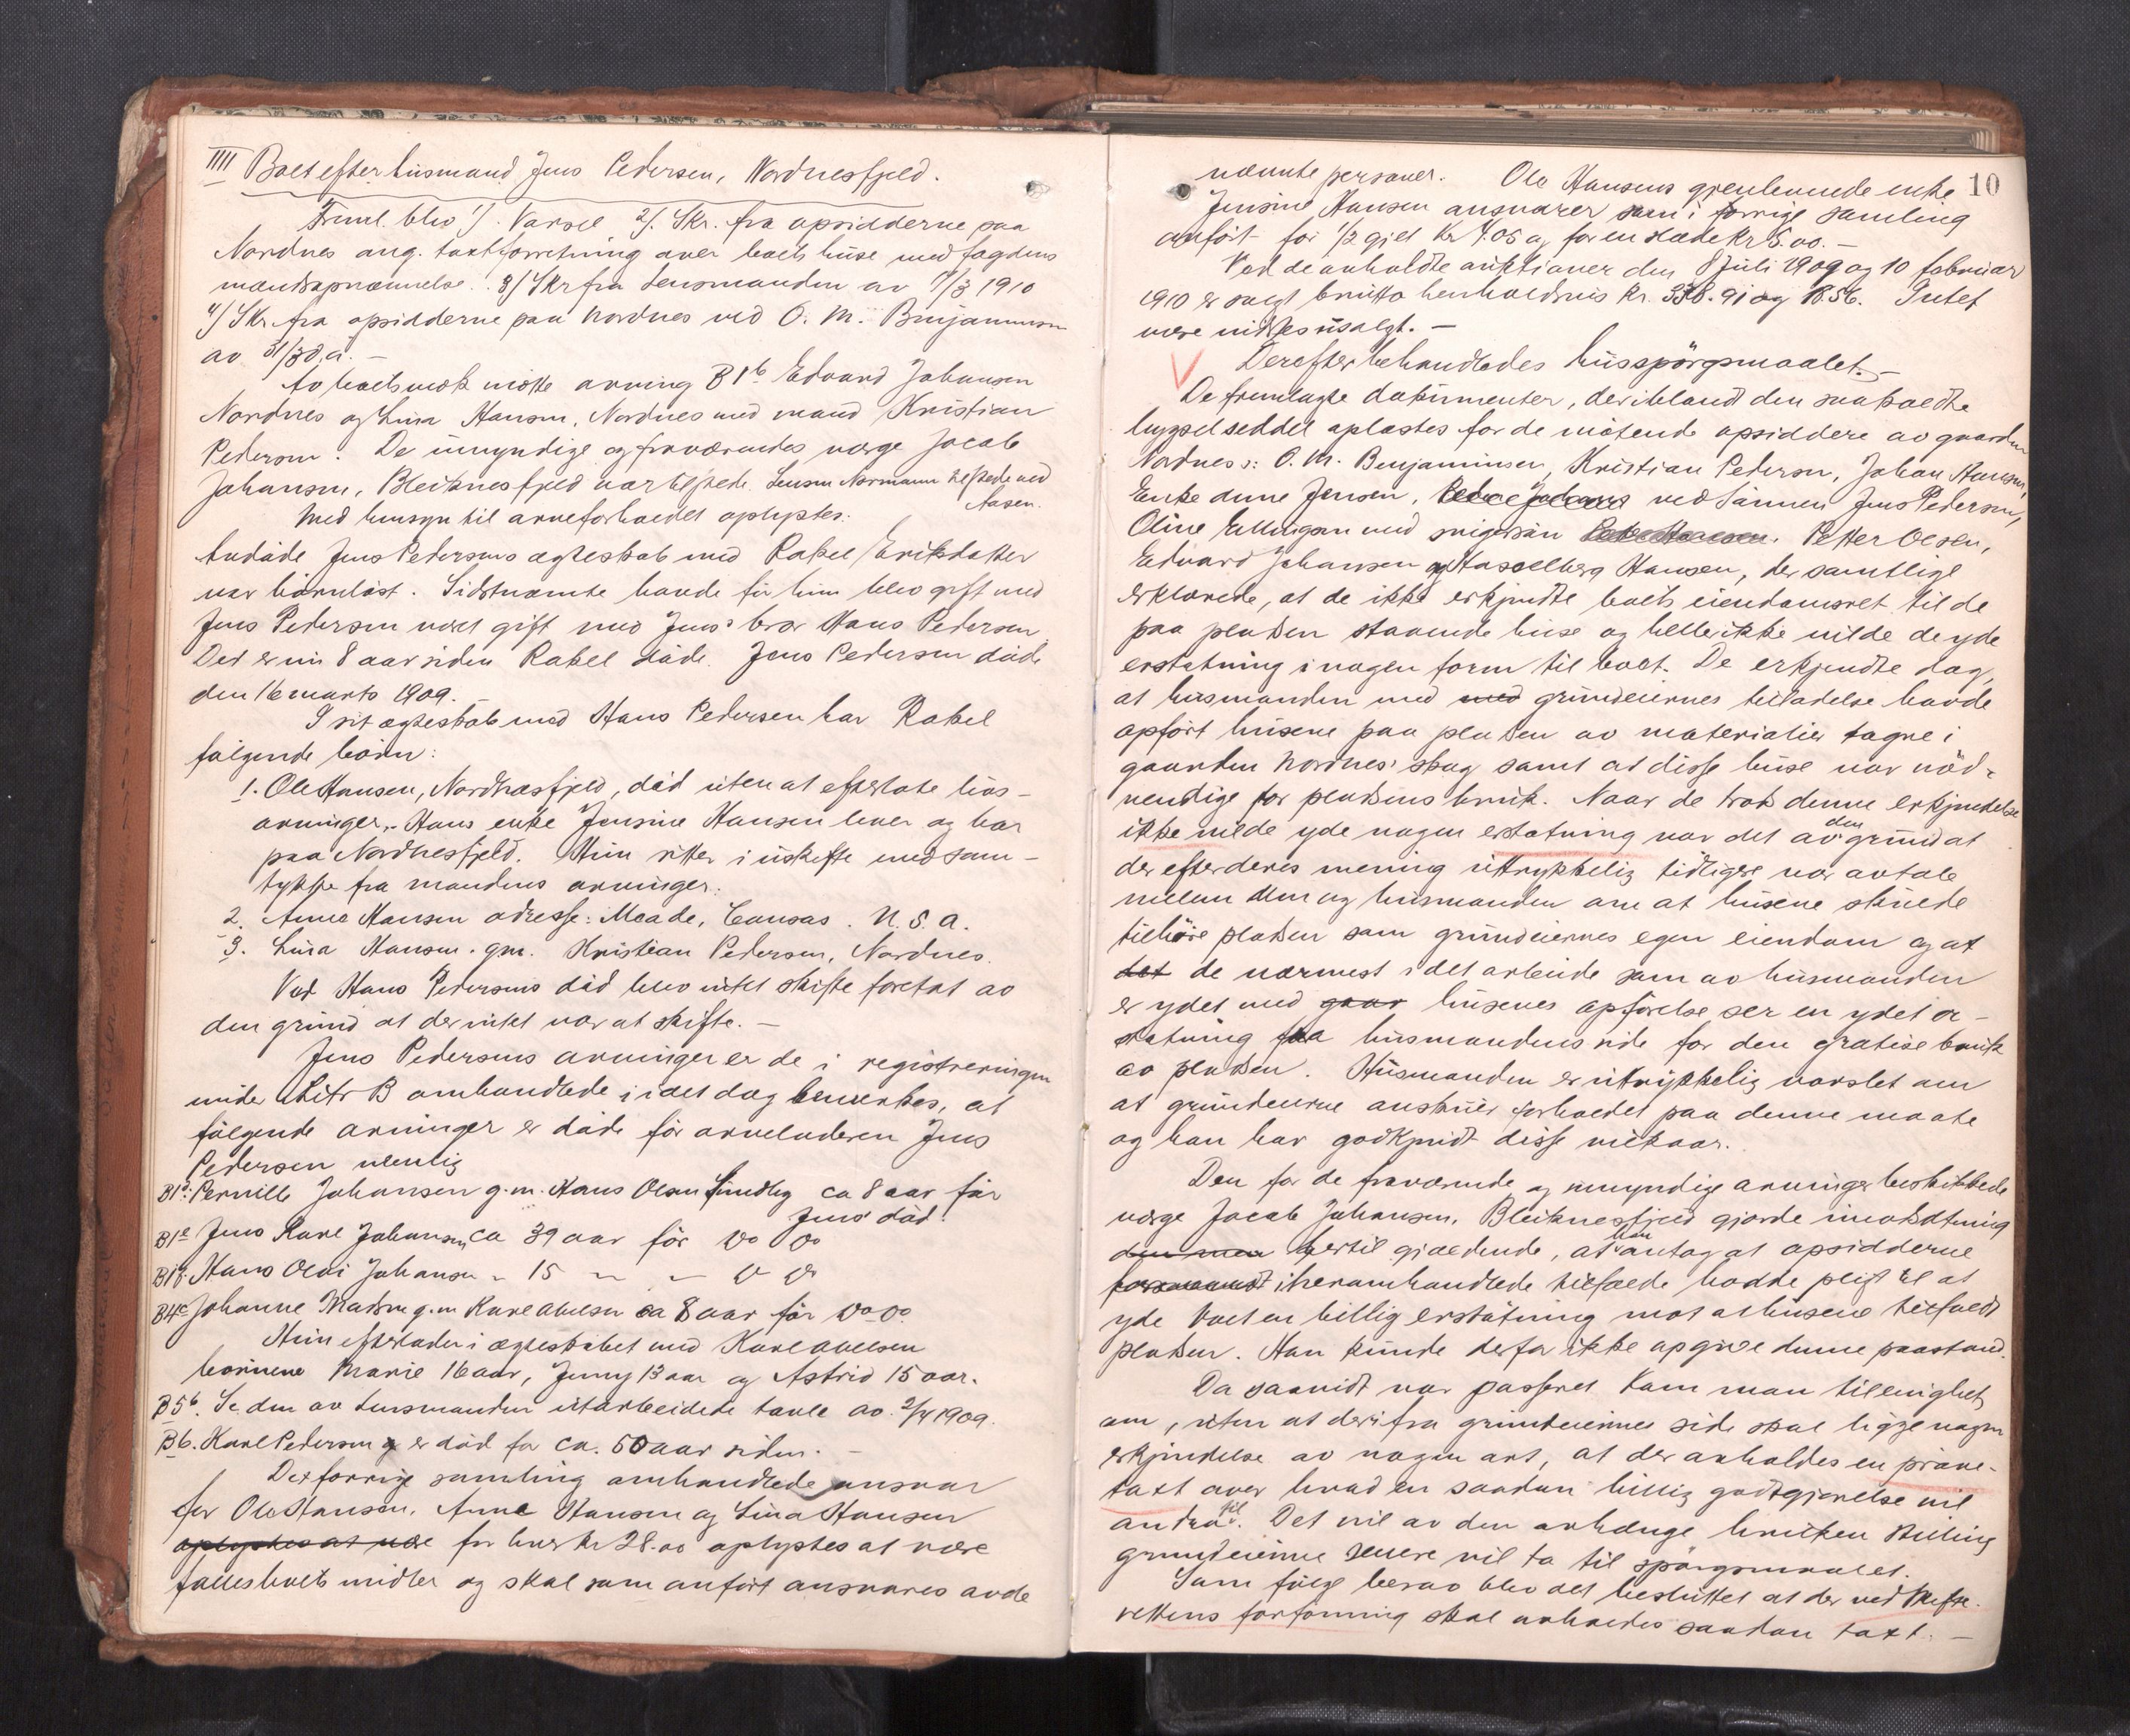 IIII Boet efter husmand Jens Pedersen, Nordnesfjeld.
Freml. blev 1/. Varsel 2/. Skr. fra opsidderne paa
Nordnes ang. taxtforretning over boets huse med fogdens
mandsopnævnelse. 3/ Skr fra Lensmanden av 7/3 1910
4/ Skr. fra opsidderne paa Nordnes ved O. M. Benjaminsen
av 31/3 d.a. –
Av boets vedk møtte arving B1b Edvard Johansen
Nordnes og Lina Hansen, Nordnes med mand Kristian
Pedersen. De umyndige og fraværendes værge Jacob
Johansen, Bleiknesfjeld var tilstede. Lensm Normann tilstede ved
Aasen.
Med hensyn til arveforholdet oplystes:
Avdøde Jens Pedersens ægteskab med Rakel Eriksdatter
var barnløst. Sidstnævnte havde før hun blev gift med
Jens Pedersen været gift med Jens' bror Hans Pedersen
Det er nu 8 aar siden Rakel døde. Jens Pedersen døde
den 16 marts 1909.
I sit ægteskab med Hans Pedersen har Rakel
følgende børn:
1. Ole Hansen, Nordnesfjeld, død uten at efterlate livs-
arvinger. Hans enke Jensine Hansen lever og bor
paa Nordnesfjeld. Hun sitter i uskifte med sam-
tykke fra mandens arvinger.
2. Anna Hansen adresse: Meade, Cansas. U. S. A.
3. Lina Hansen. gm. Kristian Pedersen, Nordnes.
Ved Hans Pedersens død blev intet skifte foretat av
den grund at der intet var at skifte. –
Jens Pedersens arvinger er de i registreringen
under Litr B omhandlede, idet dog bemerkes, at
følgende arvinger er døde før arveladeren Jens
Pedersen nemlig
B1d: Pernille Johansen g.m. Hans Olsen Lundbg ca 8 aar før
Jens' død.
B1e Jens Karl Johansen ca 39 aar før do do
B1f. Hans Olai Johansen - 15 - - do do
B4c Johanne Madsen g.m Karl Abelsen ca 8 aar før do do.
Hun efterlader i ægteskabet med Karl Abelsen
børnene Marie 16 aar, Jenny 13 aar og Astrid 15 aar.
B5b. Se den av lensmanden utarbeidede tavle av 2/4 1909.
B6. Karl Pedersen er død for ca. 50 aar siden. –
Det forrige samling omhandlede ansvar
for Ole Hansen, Anne Hansen og Lina Hansen
oplystes at være for hver kr 28.00 oplystes at være
fællesboets midler og skal som anført ansvares av de
10
nævnte personer. Ole Hansens gjenlevende enke
Jensine Hansen ansvarer som i forrige samling
anført for 1/2 gjet kr 4.05 og for en slæde kr 5.00. –
Ved de avholdte auktioner den 8 juli 1909 og 10 februar
1910 er solgt brutto henholdsvis kr. 338.91 og 18.56. Intet
være vides usolgt. –
Derefter behandledes husspørgsmaalet. –
De fremlagte dokumenter, deriblandt den saakaldte
bygselseddel oplæstes for de møtende opsiddere av gaarden
Nordnes: O. M. Benjaminsen, Kristian Pedersen, Johan Hansen,
Enke Anne Jensen, ved sønnen Jens Pedersen,
Oline Ellingsen med svigersøn Petter Olsen,
Edvard Johansen og Hasselberg Hansen, der samtlige
erklærede, at de ikke erkjendte boets eiendomsret til de
paa pladsen staaende huse og heller ikke vilde de yde
erstatning i nogen form til boet. De erkjendte dog,
at husmanden med med grundeiernes tilladelse havde
opført husene paa pladsen av materialier tagne i
gaarden Nordnes' skog samt at disse huse var nød-
vendige for pladsens bruk. Naar de trods denne erkjendelse
ikke vilde yde nogen erstatning var det av den grund at
der efter deres mening uttrykkelig tidligere var avtale
mellem dem og husmanden om at husene skulde
tilhøre pladsen som grundeiernes egen eiendom og at
det de nærmest i det arbeide som av husmanden
er ydet med husenes opførelse ser en ydet er-
statning fra husmandens side for den gratise bruk
av pladsen. Husmanden er uttrykkelig varslet om
at grundeierne anskuer forholdet paa denne maate
og han har godkjendt disse vilkaar.
Den for de fraværende og umyndige arvinger beskikkede
værge Jacob Johansen, Bleiknesfjeld gjorde innvending
den men hertil gjældende, at han antog at opsidderne
i heromhandlede tilfælde hadde pligt til at
yde boet en billig erstatning mot at husene tilfaldt
pladsen. Han kunde derfor ikke opgive denne paastand.
Da saavidt var passeret kom man til enighet
om, uten at deri fra grundeiernes side skal ligge nogen
erkjendelse av nogen art, at der avholdes en prøve-
taxt over hvad en saadan billig godtgjørelse vil
andra til. Det vil av den avhænge hvilken stilling
grundeierne senere vil ta til spørgsmaalet.
Som følge herav blev det besluttet at der ved skifte-
rettens forføining skal avholdes saadan taxt. –